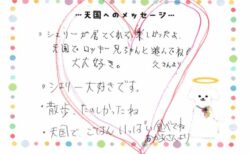 …天国へのメッセージ…
・シェリーが居てくれて楽しかったよ。
天国でロッキー兄ちゃんと遊んでね!
大大好き。
久さんより
・シェリー大好きです。
・散歩、たのしかったね
・天国で、ごはんいっぱい食べてね
おかあさんより